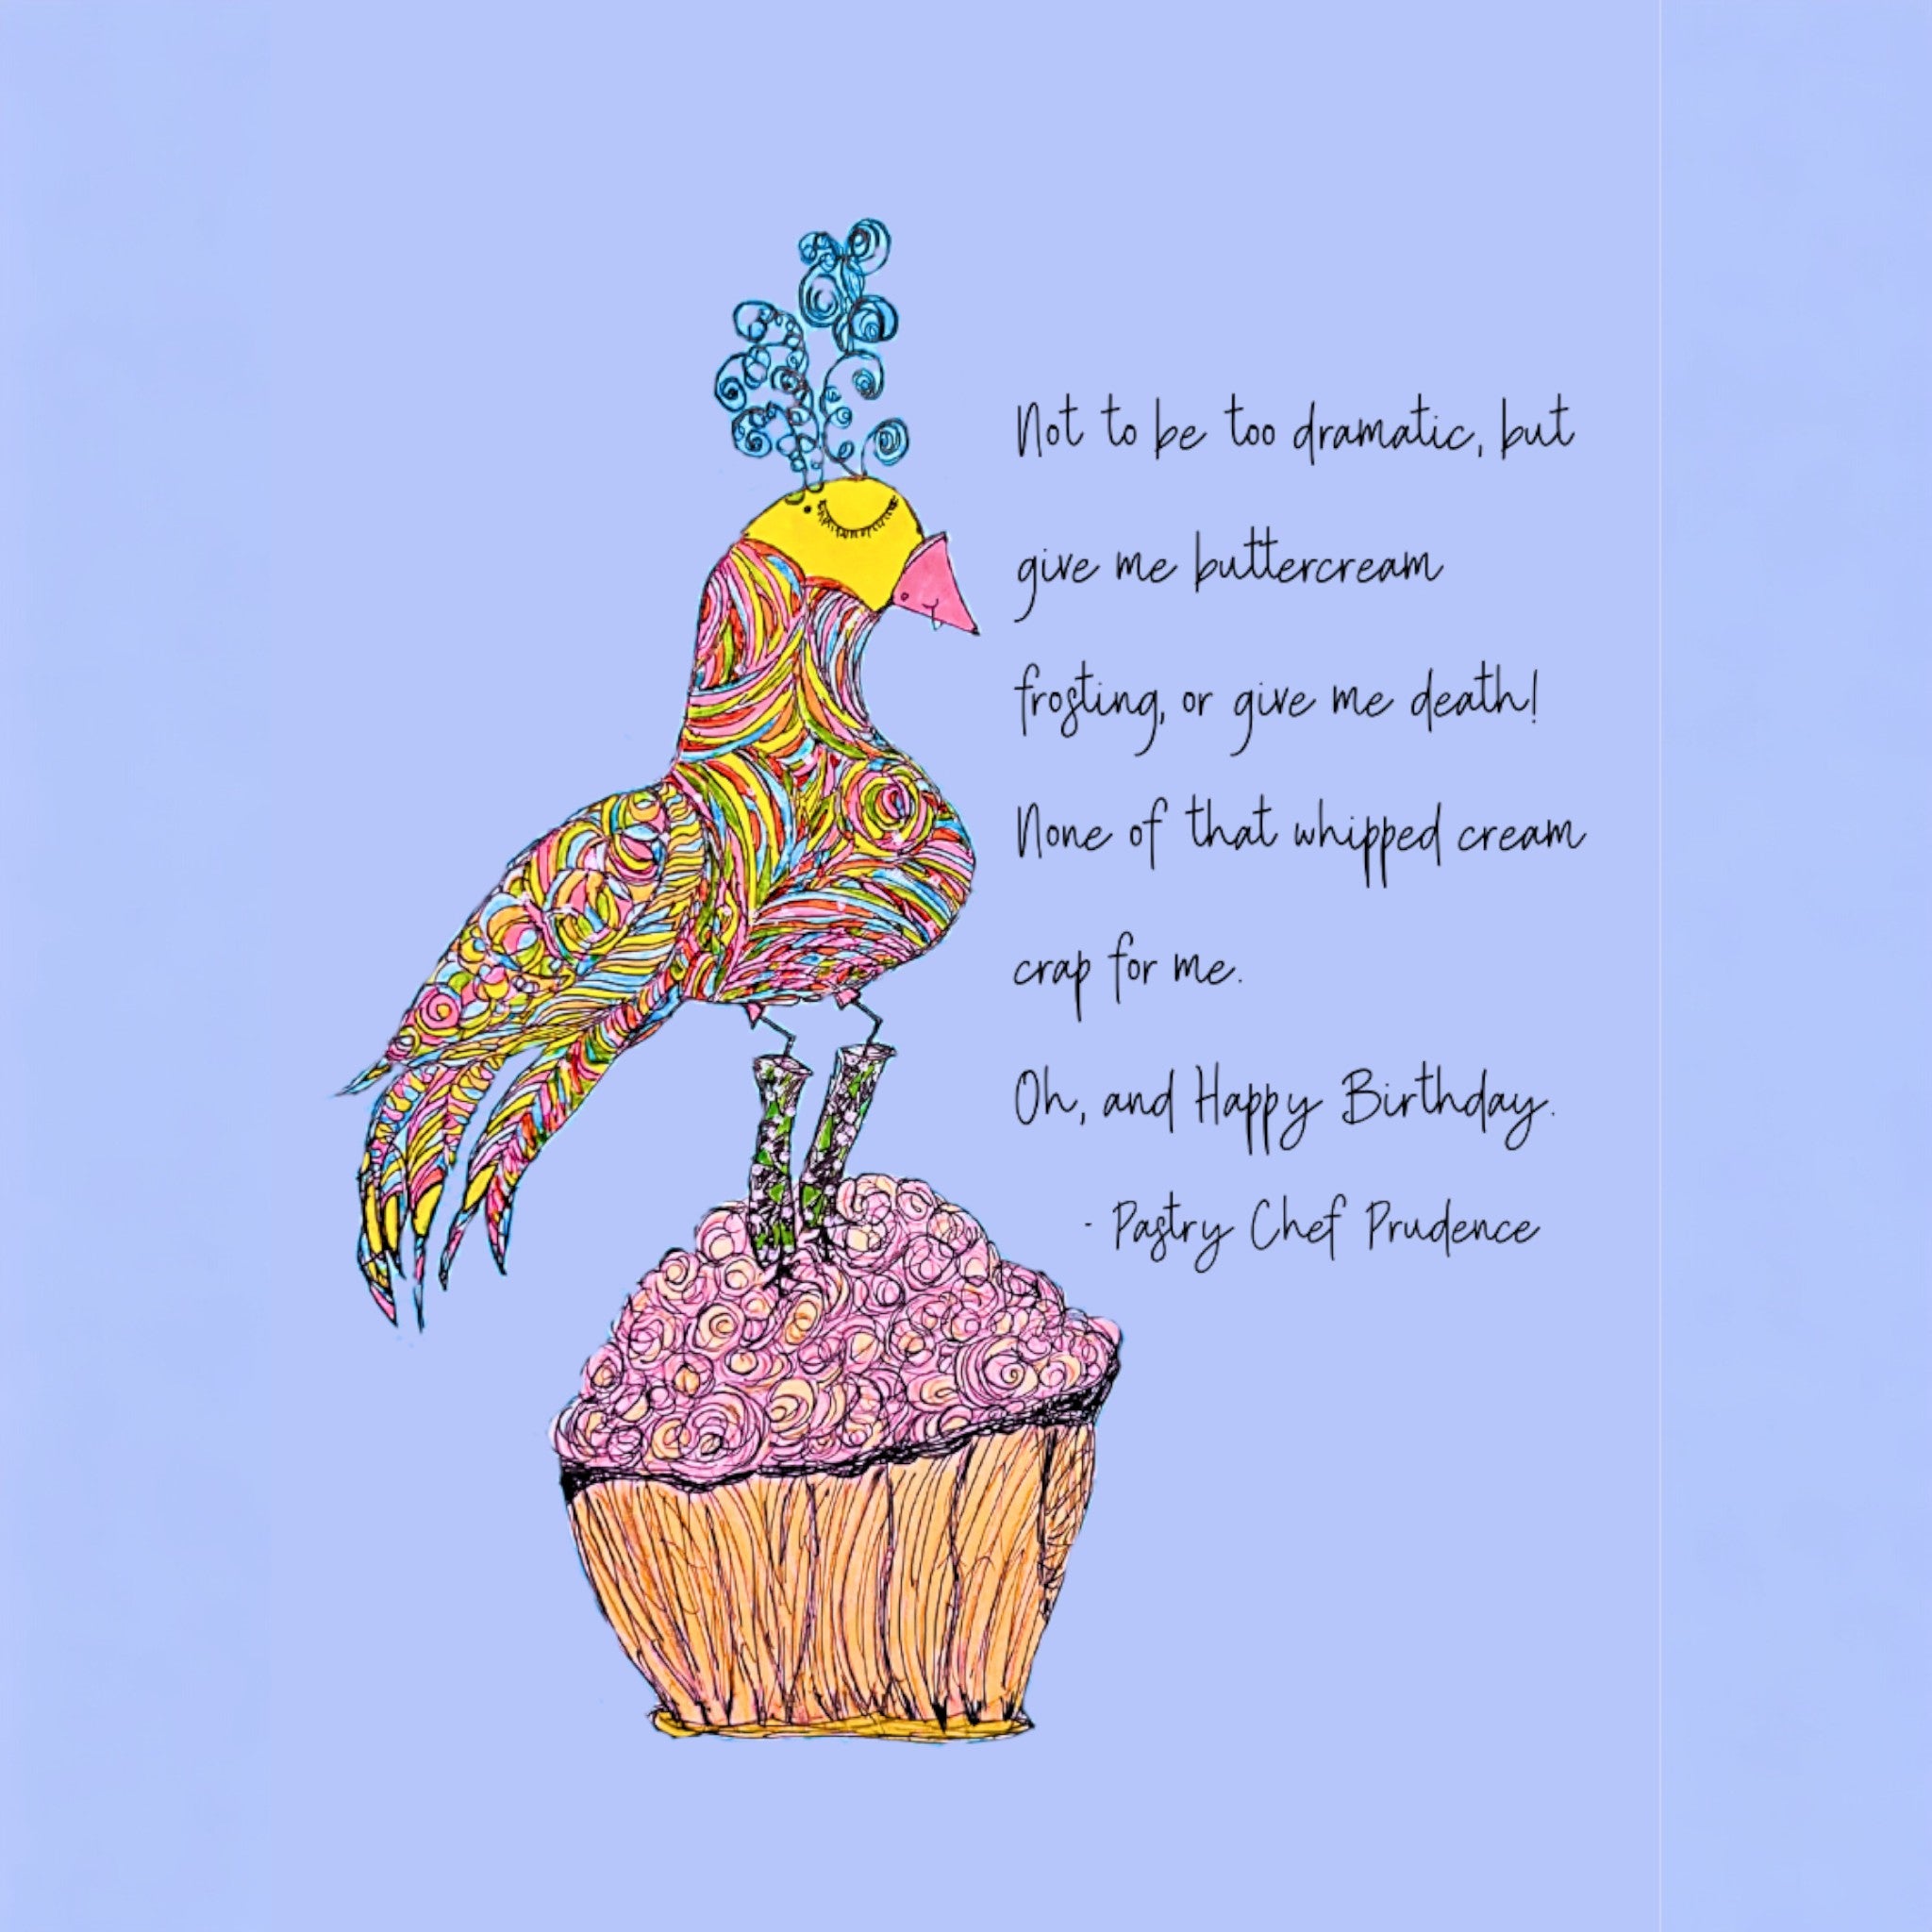 Not to be too dramatic, but
give me buttercream
frosting, or give me death!
None of that whipped cream
crap for me.
Oh, and Happy Birthday.
- Pastry Chef Prudence